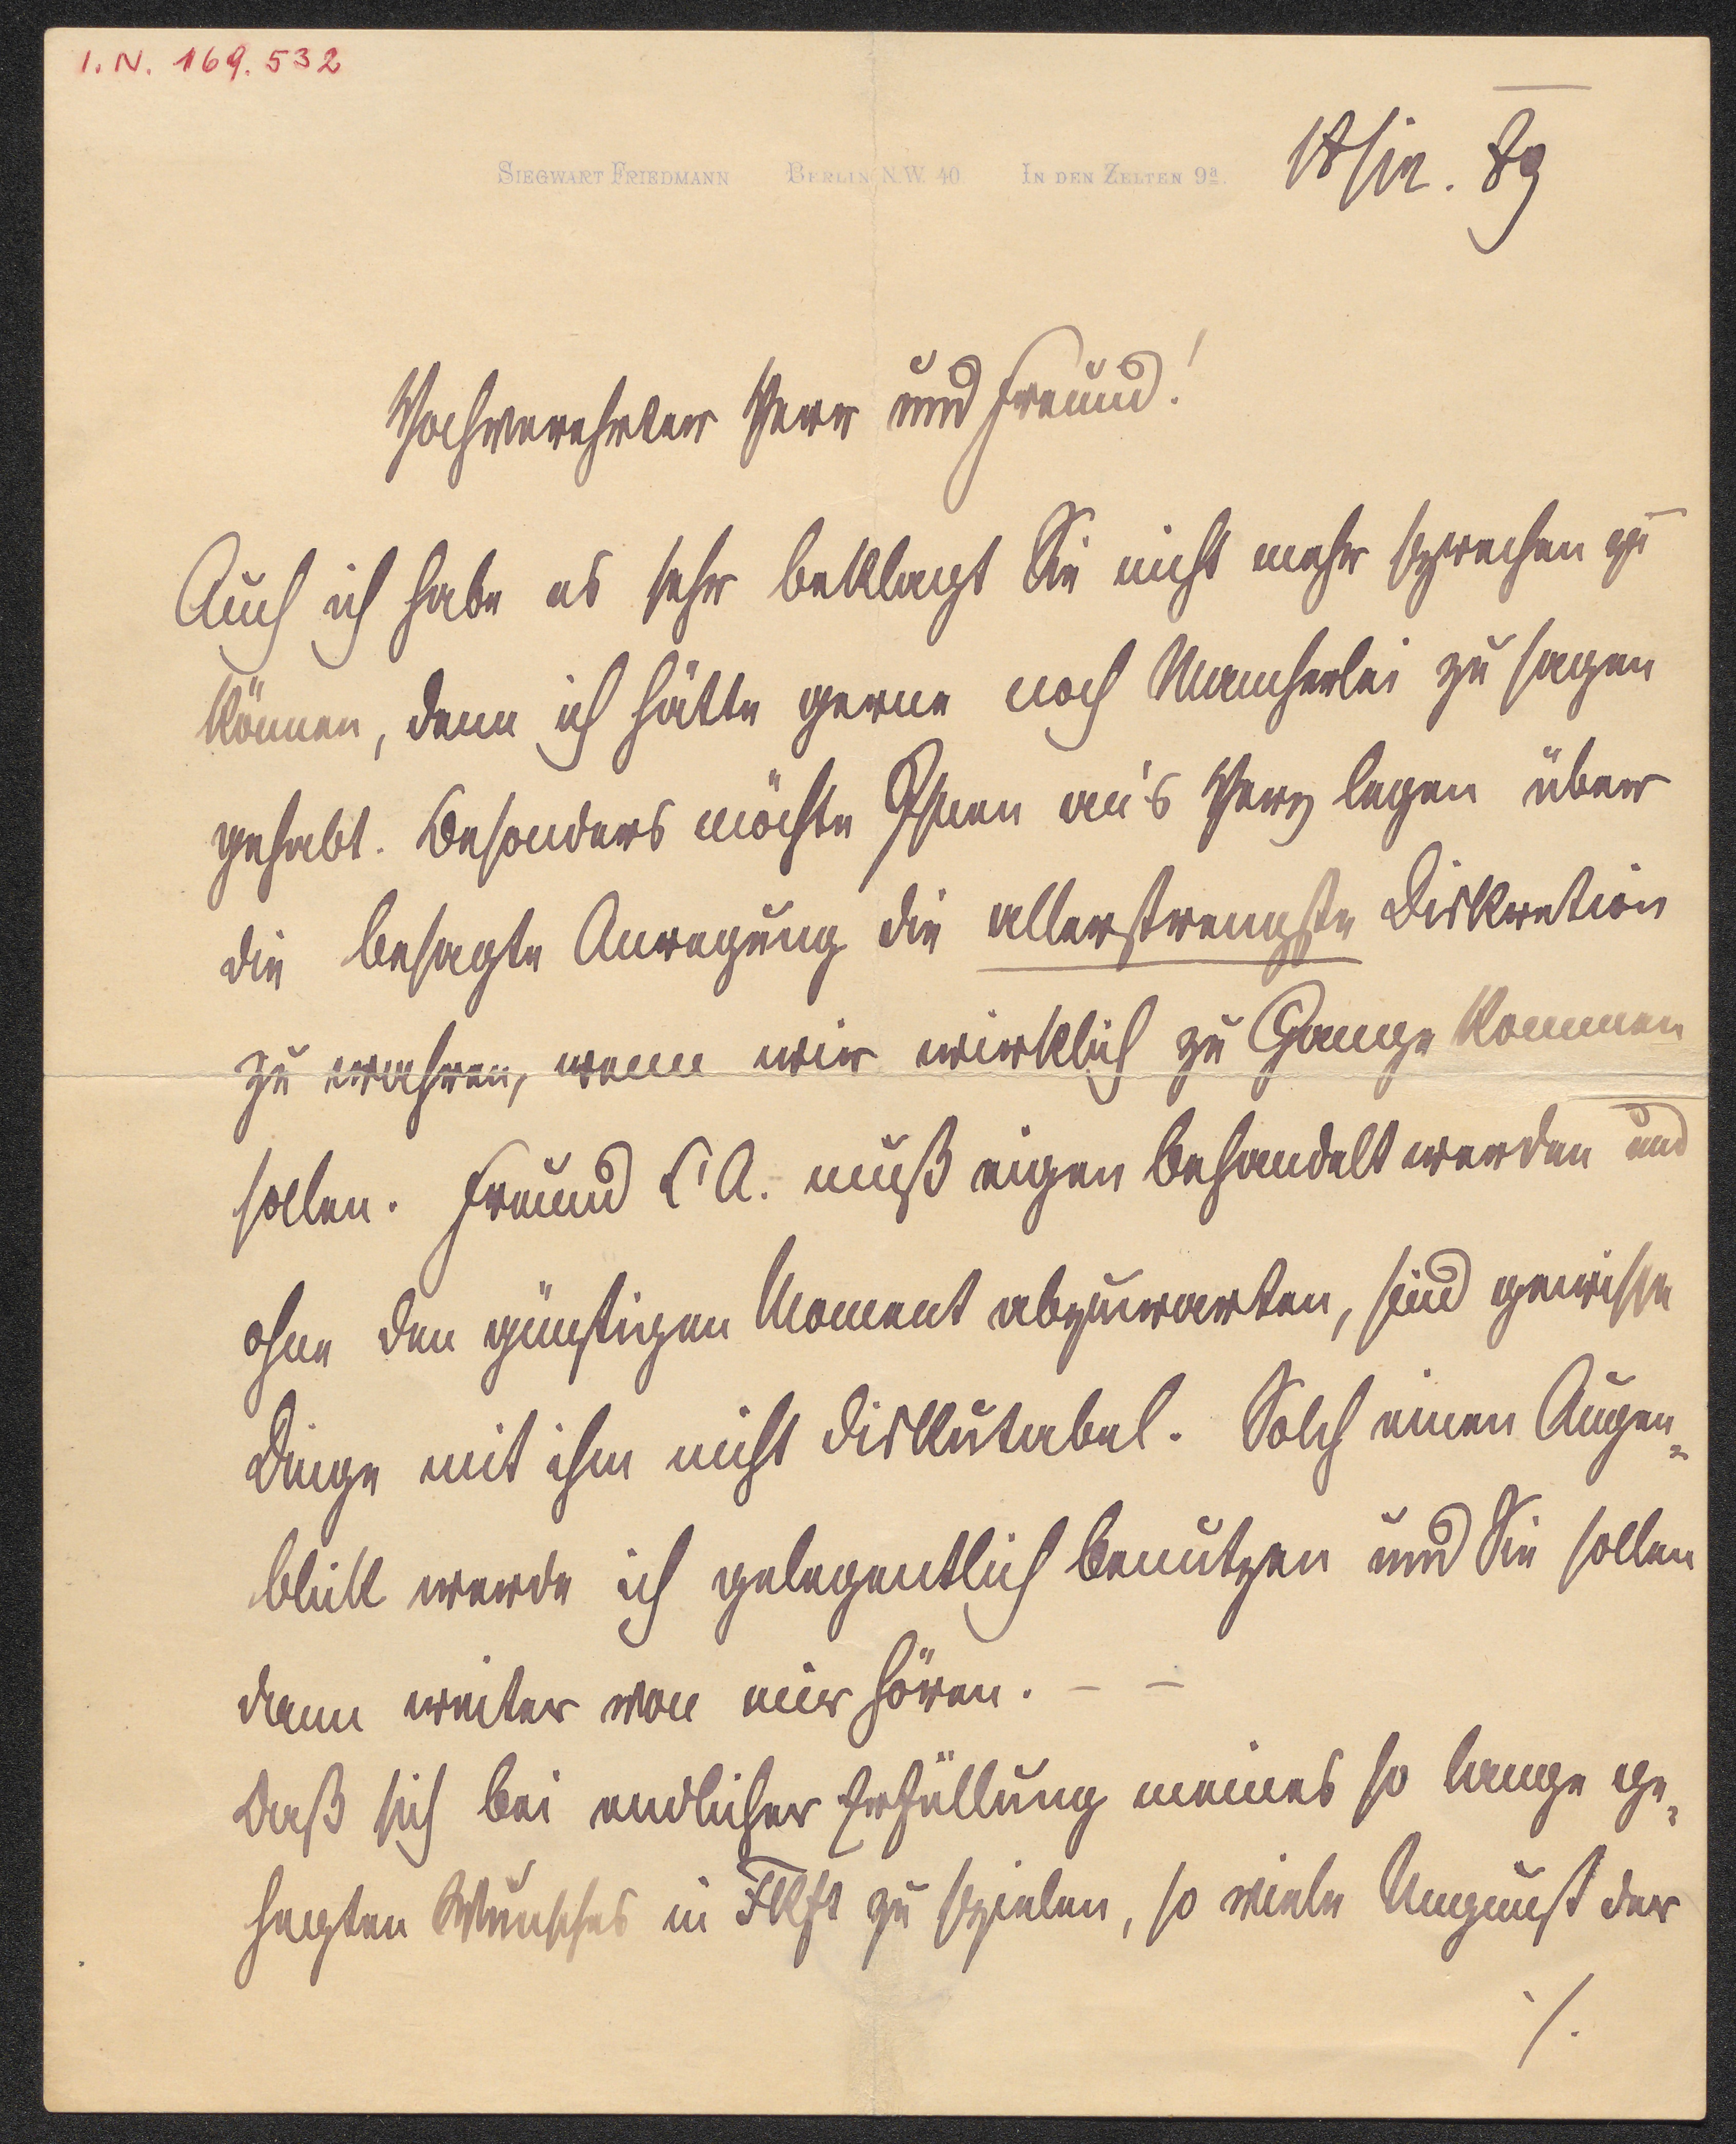 I. N. 169.532
SIEGWART FRIEDMANN BERLIN N.W. 40 IN DEN ZELTEN 9a.
89
Hochverehrter Herr und Freund!
Auch ich habe es sehr beklagt Sie nicht mehr sprechen zu
können, denn ich hätte gerne noch Mancherlei zu sagen
gehabt. Besonders möchte Ihnen an's Herz legen über
die besagte Anregung die allerstrengste Diskretion
zu wahren, wenn wir wirklich zu Gange kommen
sollen. Freund L'A. muß eigen behandelt werden und
ohne den günstigen Moment abzuwarten, sind gewisse
Dinge mit ihm nicht diskutabel. Solch einen Augen-
blick werde ich gelegentlich benutzen und Sie sollen
dann weiter von mir hören. – –
Daß sich bei endlicher Erfüllung meines so lange ge-
hegten Wunsches in Fkft zu spielen, so viele Ungunst der
./.